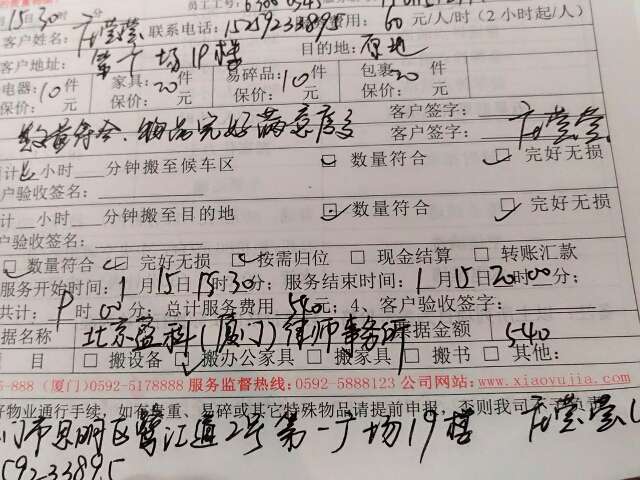 月15日 员工工号: 6300 费用: 60 元/人/时 (2小时起/人)
客户姓名: 庄莹莹 联系电话: 15259233895
客户地址: 第一广场19楼 目的地: 原地
电器: 10件 家具: 20件 易碎品: 10件 包裹: 20件
保价: 元 保价: 元 保价: 元 保价: 元
数量符合、物品完好满意度 客户签字:
客户签字: 庄莹莹
计 小时 分钟搬至候车区 数量符合 完好无损
客户验收签名:
计 小时 分钟搬至目的地 数量符合 完好无损
客户验收签名:
数量符合 完好无损 按需归位 现金结算 转账汇款
服务开始时间: 1月15日 时30分; 服务结束时间: 1月15日20时00分;
共计: 时00分; 总计服务费用540元; 4、客户验收签字:
据名称 北京盈科(厦门)律师事务所 票据金额 540
目 搬设备 搬办公家具 搬家具 搬书 其他:
5-888 (厦门)0592-5178888 服务监督热线: 0592-5888123 公司网站: www.xiaoyujia.com
好物业通行手续, 如有贵重、易碎或其它特殊物品请提前申报, 否则我司不予负责
门市思明区鹭江道2号第一广场19楼 庄莹莹(
59233895